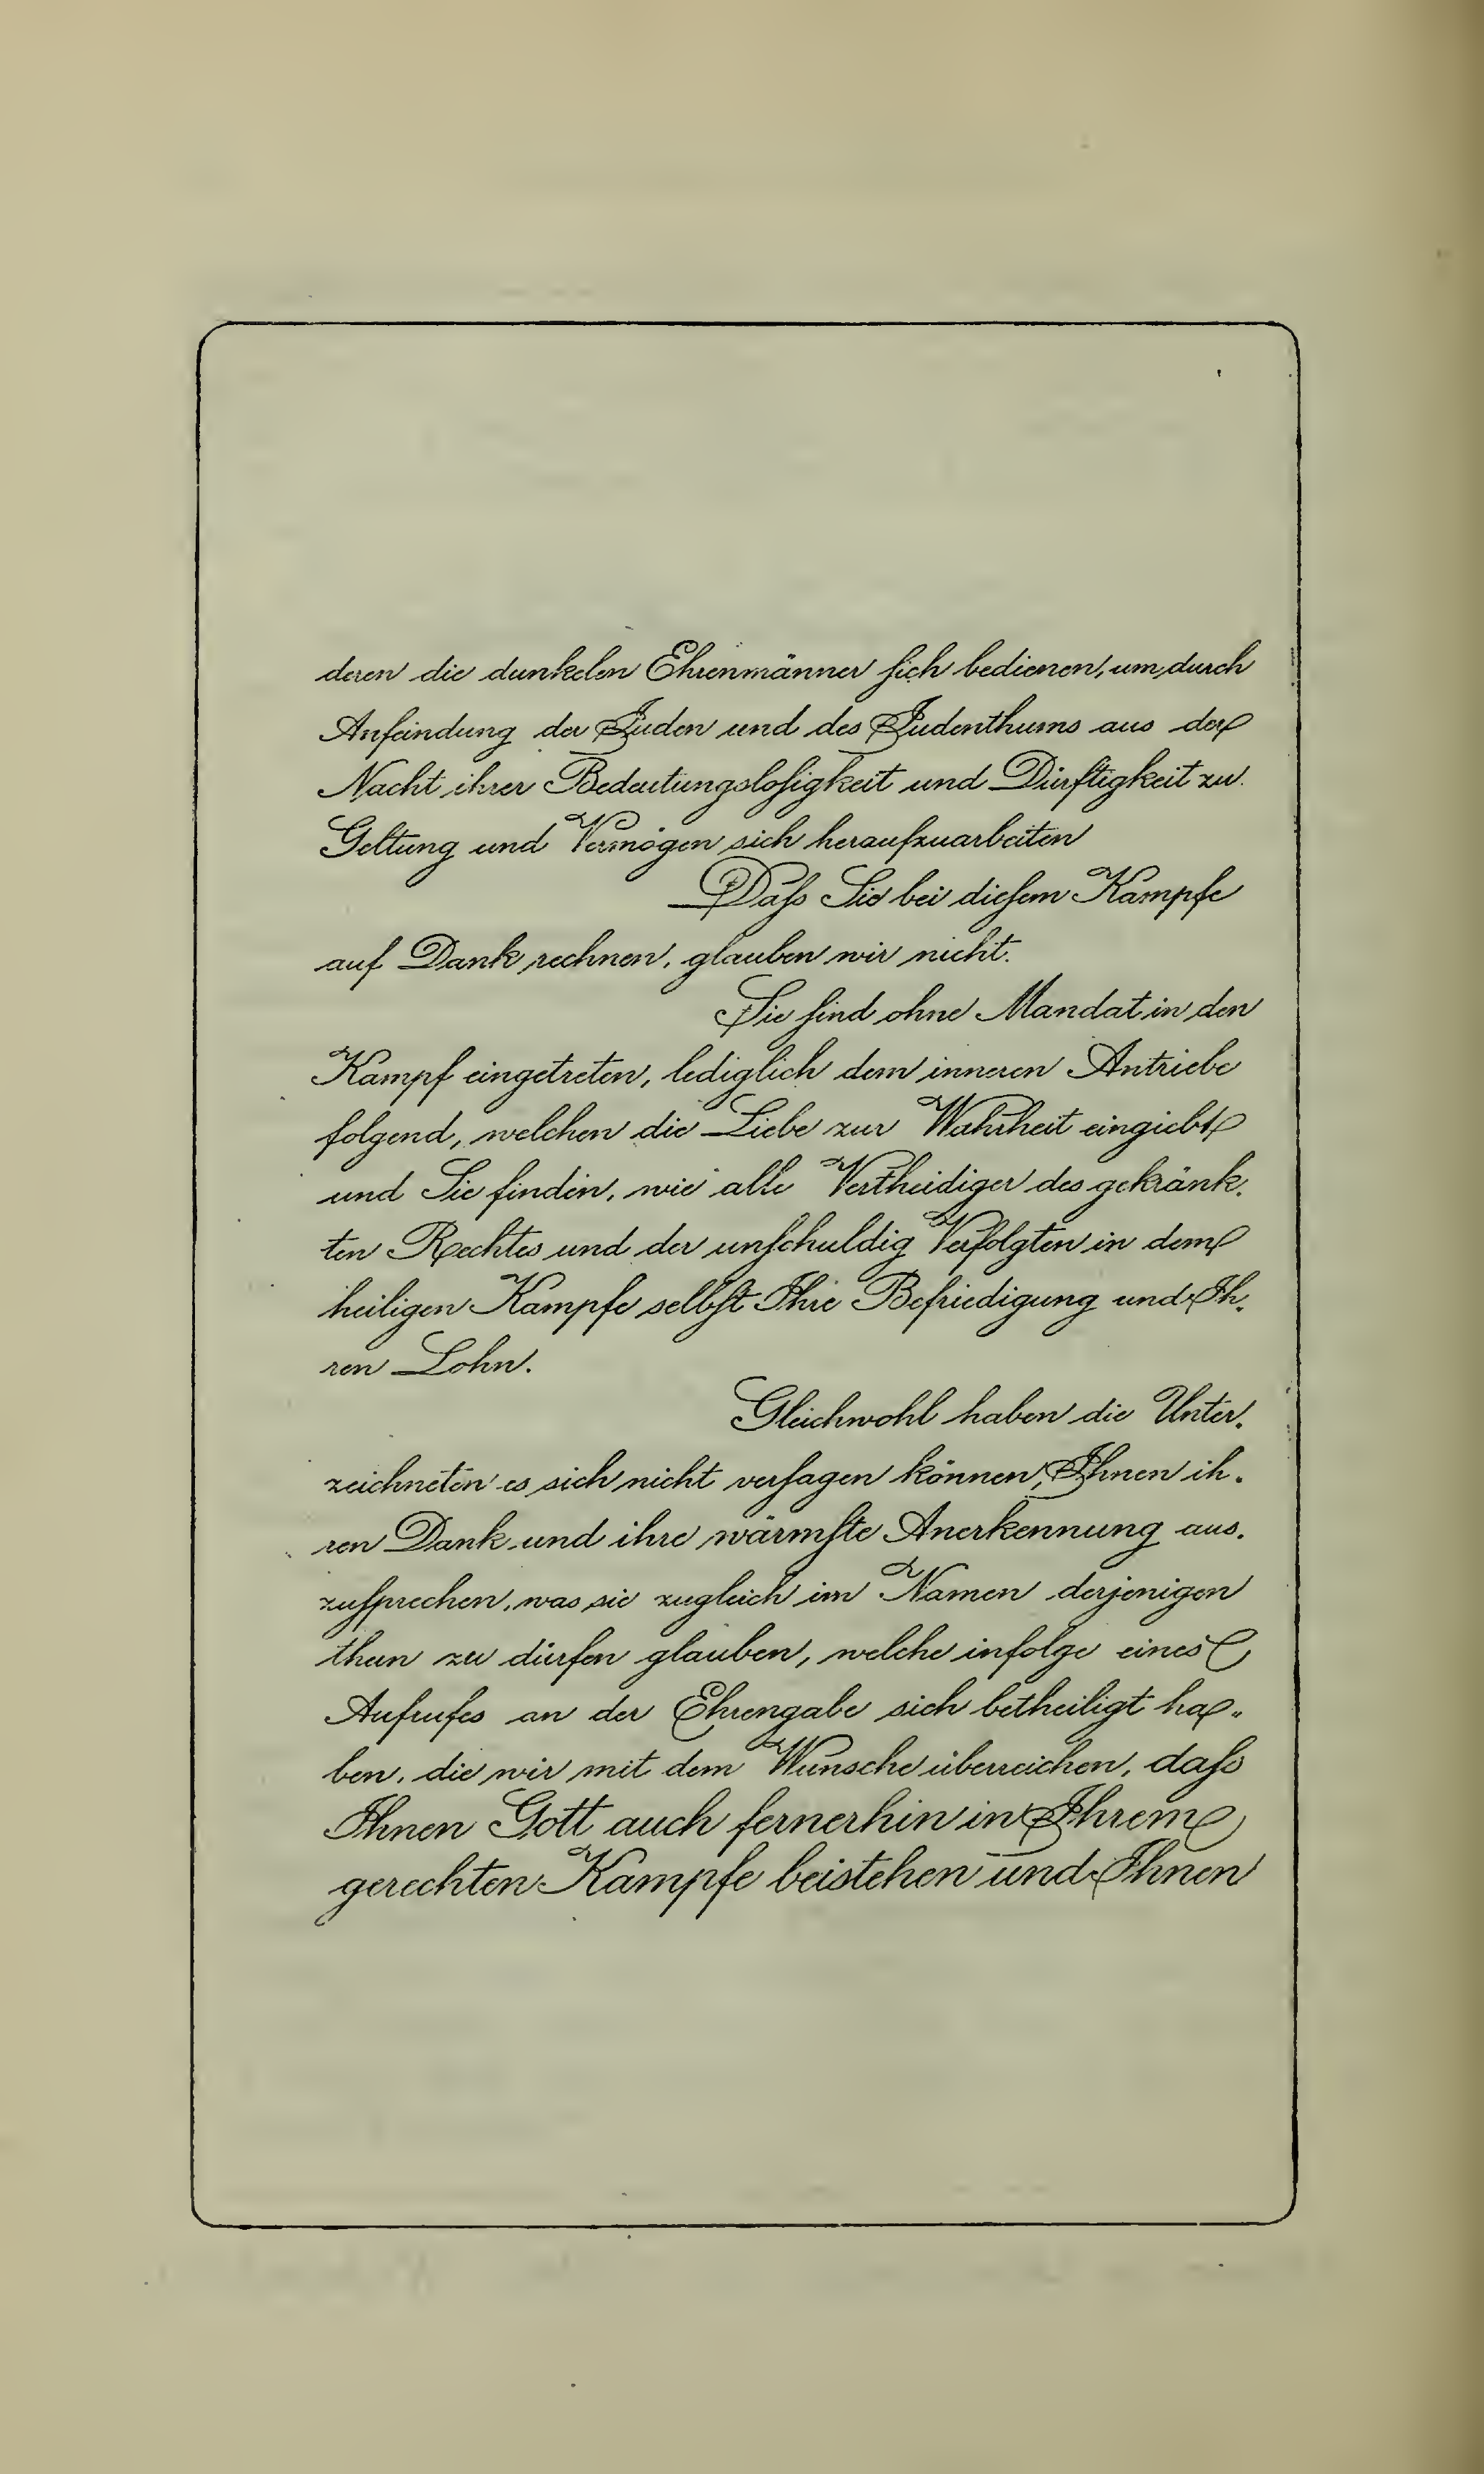 deren die dunkelen Ehrenmänner ſich bedienen, um durch
Anfeindung der Juden und des Judenthums aus der
Nacht ihrer Bedeutungsloſigkeit und Dürftigkeit zu
Geltung und Vermögen sich heraufzuarbeiten
Daſs Sie bei dieſem Kampfe
auf Dank rechnen, glauben wir nicht.
Sie ſind ohne Mandat in den
Kampf eingetreten, lediglich dem inneren Antriebe
folgend, welchen die Liebe zur Wahrheit eingiebt
und Sie finden, wie alle Vertheidiger des gekränk-
ten Rechtes und der unſchuldig Verfolgten in dem
heiligen Kampfe selbſt Ihre Befriedigung und Ih-
ren Lohn.
Gleichwohl haben die Unter-
zeichneten es sich nicht verſagen können, Ihnen ih-
ren Dank und ihre wärmſte Anerkennung aus-
zuſprechen, was sie zugleich im Namen derjenigen
thun zu dürfen glauben, welche infolge eines
Aufrufes an der Ehrengabe sich betheiligt ha-
ben, die wir mit dem Wunsche überreichen, daſs
Ihnen Gott auch fernerhin in Ihrem
gerechten Kampfe beistehen und Ihnen